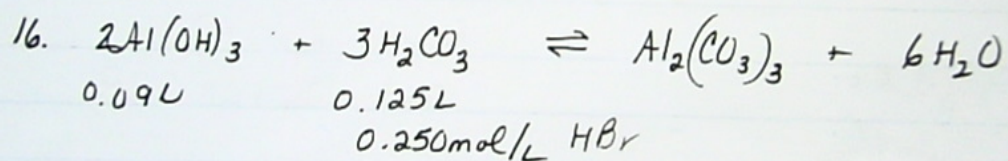 16. 2Al(OH)₃ + 3H₂CO₃ ⇌ Al₂(CO₃)₃ + 6H₂O
0.09L 0.125L
0.250mol/L HBr